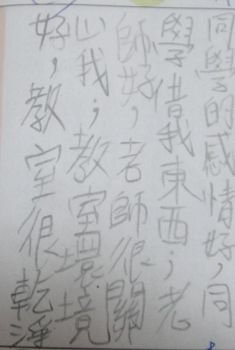 同學的感情好，同
學借我東西；老
師好，老師很關
心我；教室環境
好，教室很乾淨